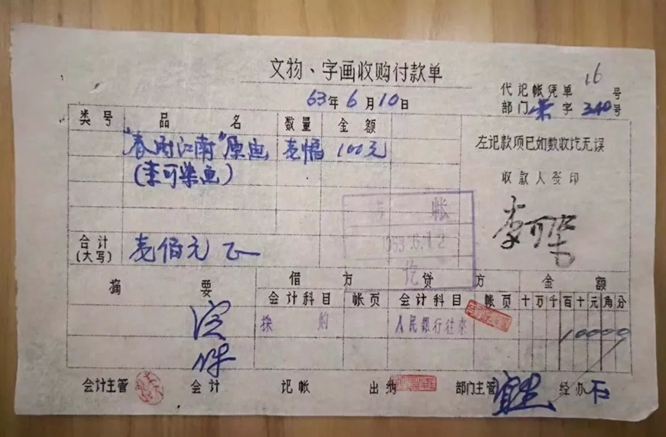 文物、字画收购付款单
63年6月10日
代记帐凭单 16 号
部门 荣 字 340号
类号 品名 数量 金额
"春雨江南"原画 壹幅 100元
(李可染画)
左记款项已如数收讫无误
收款人签印
李可染
合计(大写) 壹佰元正
帐
讫
摘要 借方 贷方 金额
会计科目 帐页 会计科目 帐页 十万千百十元角分
采购 人民银行往来 10000
会计主管 会计 记帐 出纳 部门主管 经办